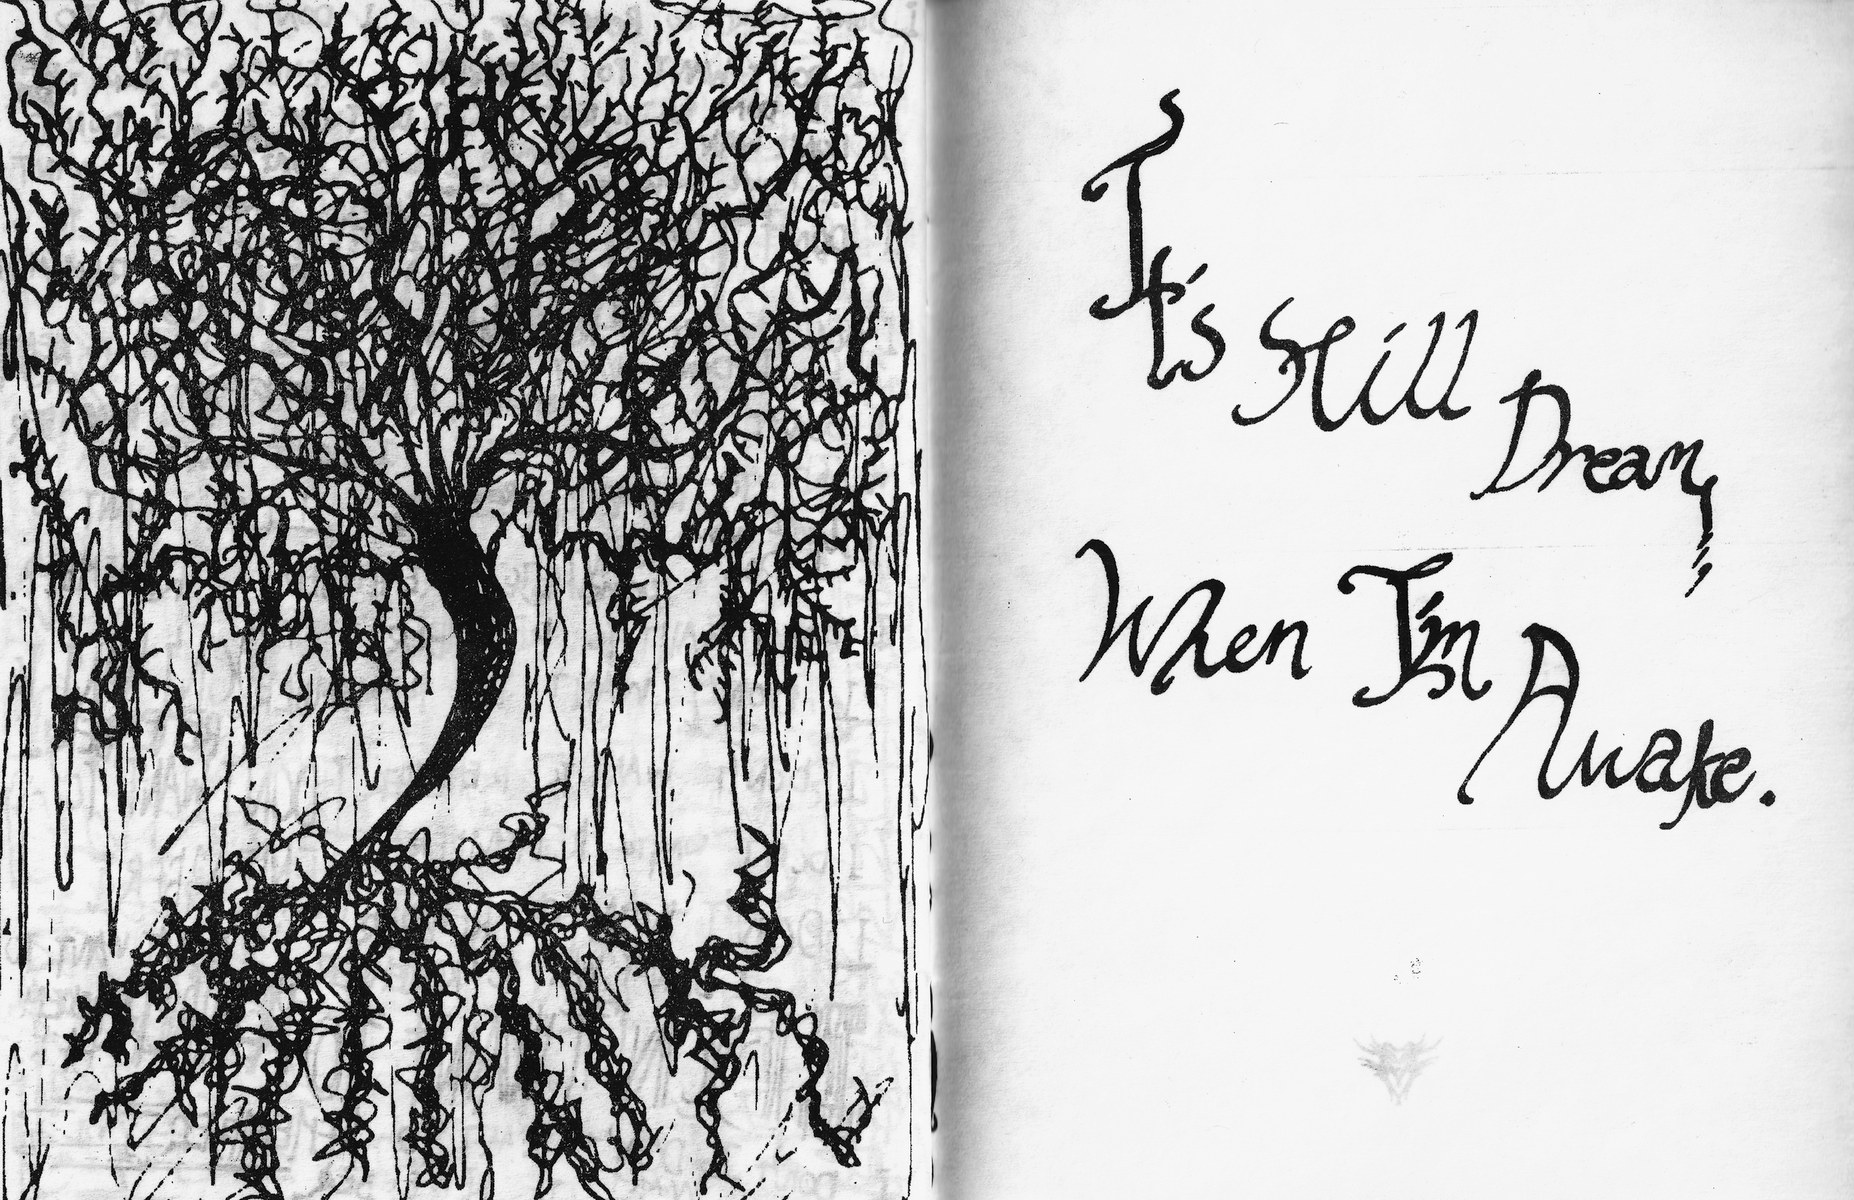 It's Still Dream,
When I'm Awake.